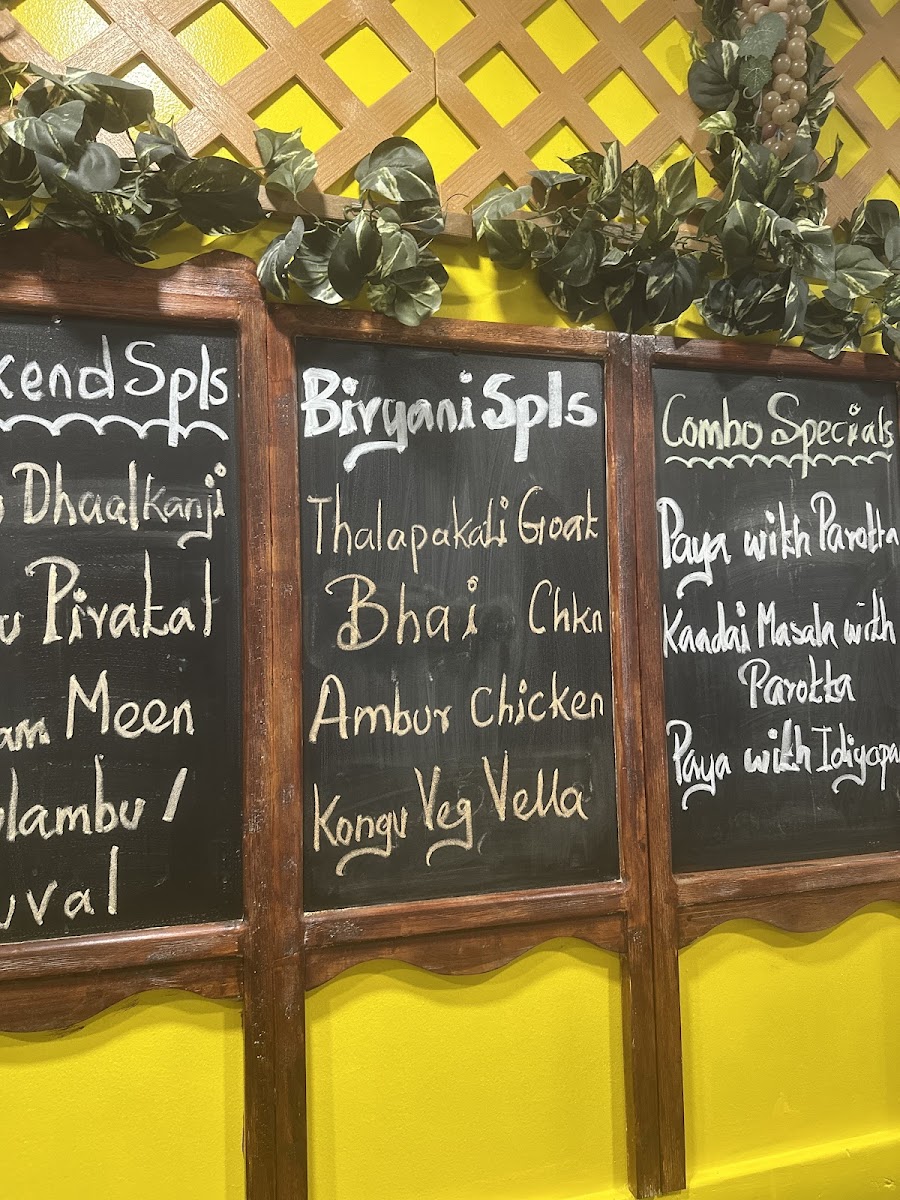 Spls
Dhaalkanji
Pivatal
Meen
Biryani Spls
Thalapakati Goat
Bhai Chkn
Ambur Chicken
Kongu Veg Vella
Combo Specials
Paya with Parotta
Kaadai Masala with
Parotta
Paya with